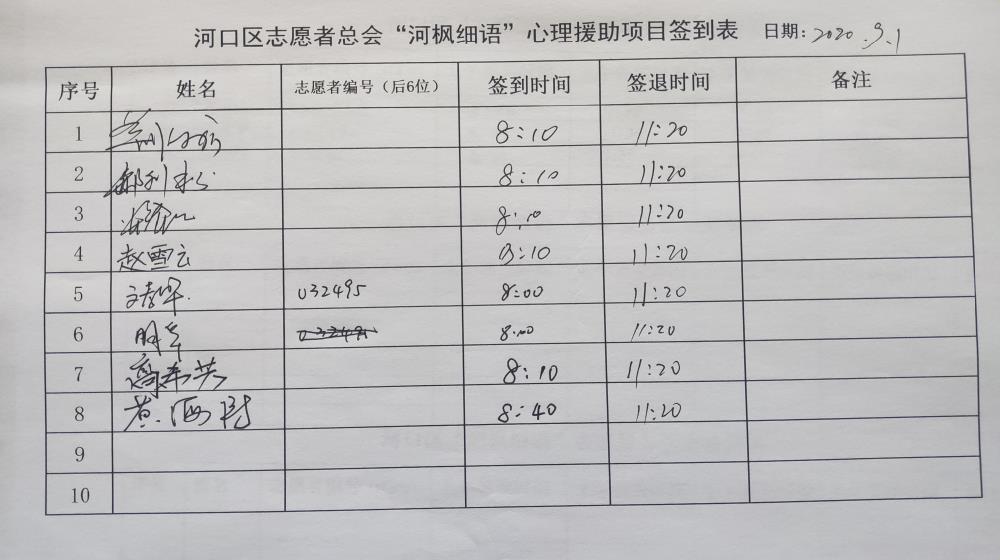 河口区志愿者总会“河枫细语”心理援助项目签到表 日期：2020.9.1
序号 姓名 志愿者编号（后6位） 签到时间 签退时间 备注
1 8:10 11:20
2 8:10 11:20
3 8:10 11:20
4 赵雪云 8:10 11:20
5 032495 8:00 11:20
6 8:00 11:20
7 8:10 11:20
8 8:40 11:20
9
10